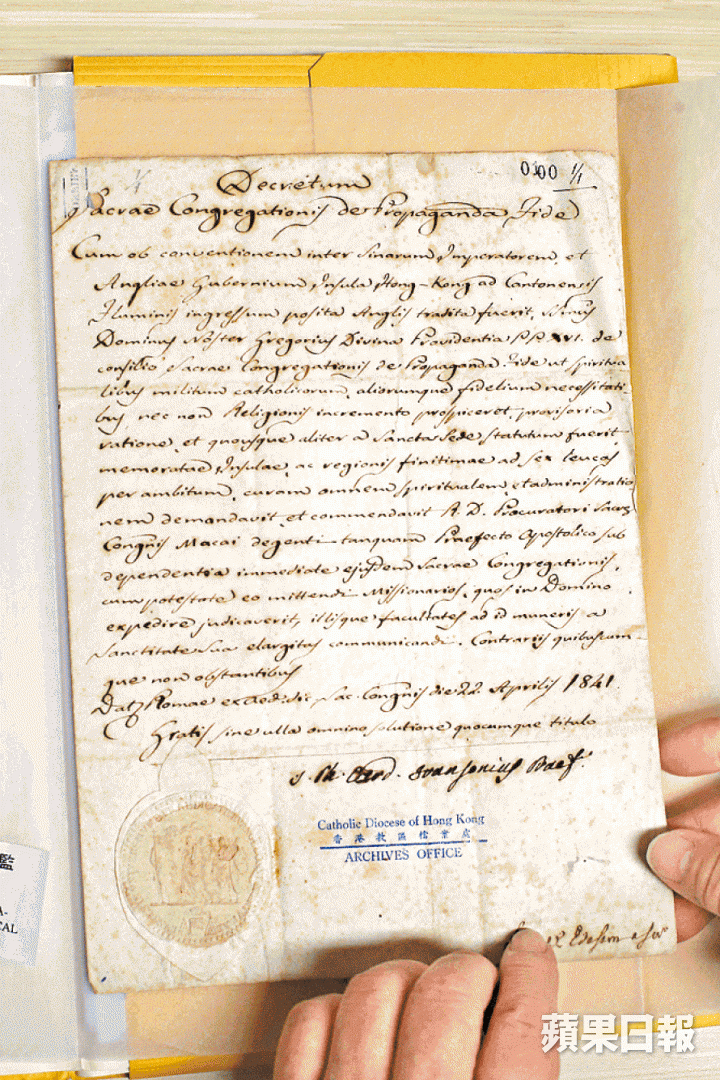 0100 1/1
Decretum
Sacrae Congregationis de Propaganda Fide
Cum ob conventionem inter Sinarum Imperatorem, et
Angliae Gubernium Insula Hong-Kong ad Cantonensis
Fluminis ingressum posita Anglis tradita fuerit, SSmus
Dominus Noster Gregorius Divina Providentia PP. XVI. de
consilio Sacrae Congregationis de Propaganda Fide ut spiritua
libus militum catholicorum, aliorumque fidelium necessitati
bus, nec non Religionis incremento prospiceret, provisoria
ratione, et quousque aliter a Sancta Sede statutum fuerit
memoratae Insulae, ac regionis finitimae ad sex leucas
per ambitum, curam omnem spiritualem, et administratio
nem demandavit, et commendavit R. D. Procuratori Sacrae
Congnis Macai degenti tanquam Praefecto Apostolico sub
dependentia immediate ejusdem Sacrae Congregationis,
cum potestate eo mittendi Missionarios, quos in Domino
expedire judicaverit, illisque facultates ad id muneris a
Sanctitate Sua elargitas communicandi. Contrariis quibuscum
que non obstantibus
Dat. Romae ex Aed. dic. Sac. Congnis die 22. Aprilis 1841.
Gratis sine ulla omnino solutione quocumque titulo
J. Ph. Card. Fransonius Praef.
Catholic Diocese of Hong Kong
香港教區檔案處
ARCHIVES OFFICE
鑑
A-
CAL
蘋果日報